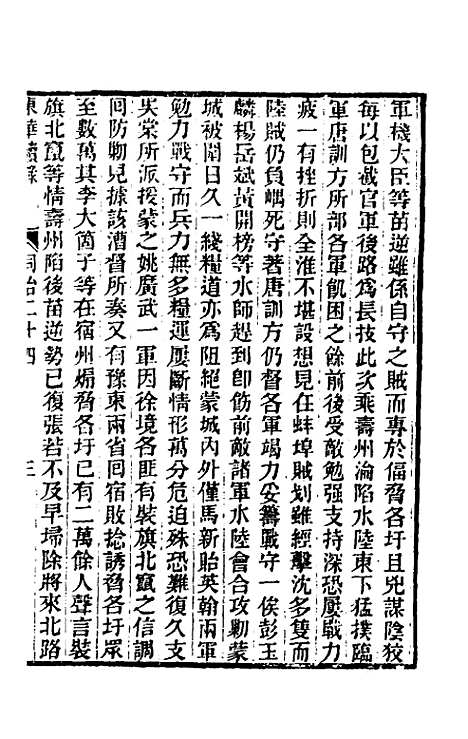 軍機大臣等苗逆雖係自守之賊而專於偪脅各圩且兇謀陰狡
每以包截官軍後路爲長技此次乘壽州淪陷水陸東下猛撲臨
軍唐訓方所部各軍飢困之餘前後受敵勉强支持深恐屢戰力
疲一有挫折則全淮不堪設想見在蚌埠賊划雖經擊沈多隻而
陸賊仍負嵎死守著唐訓方仍督各軍竭力妥籌戰守一俟彭玉
麟楊岳斌黃開榜等水師趕到卽飭前敵諸軍水陸會合攻勦蒙
城被圍日久一綫糧道亦爲阻絕蒙城內外僅馬新貽英翰兩軍
勉力戰守而兵力無多糧運屢斷情形萬分危迫殊恐難復久支
吳棠所派援蒙之姚廣武一軍因徐境各匪有裝旗北竄之信調
回防勦兒據該漕督所奏又有豫東兩省回宿敗捻誘脅各圩眾
至數萬其李大箇子等在宿州煽脅各圩已有二萬餘人聲言裝
旗北竄等情壽州陷後苗逆勢已復張若不及早埽除將來北路
東華續錄
同治二十四
三